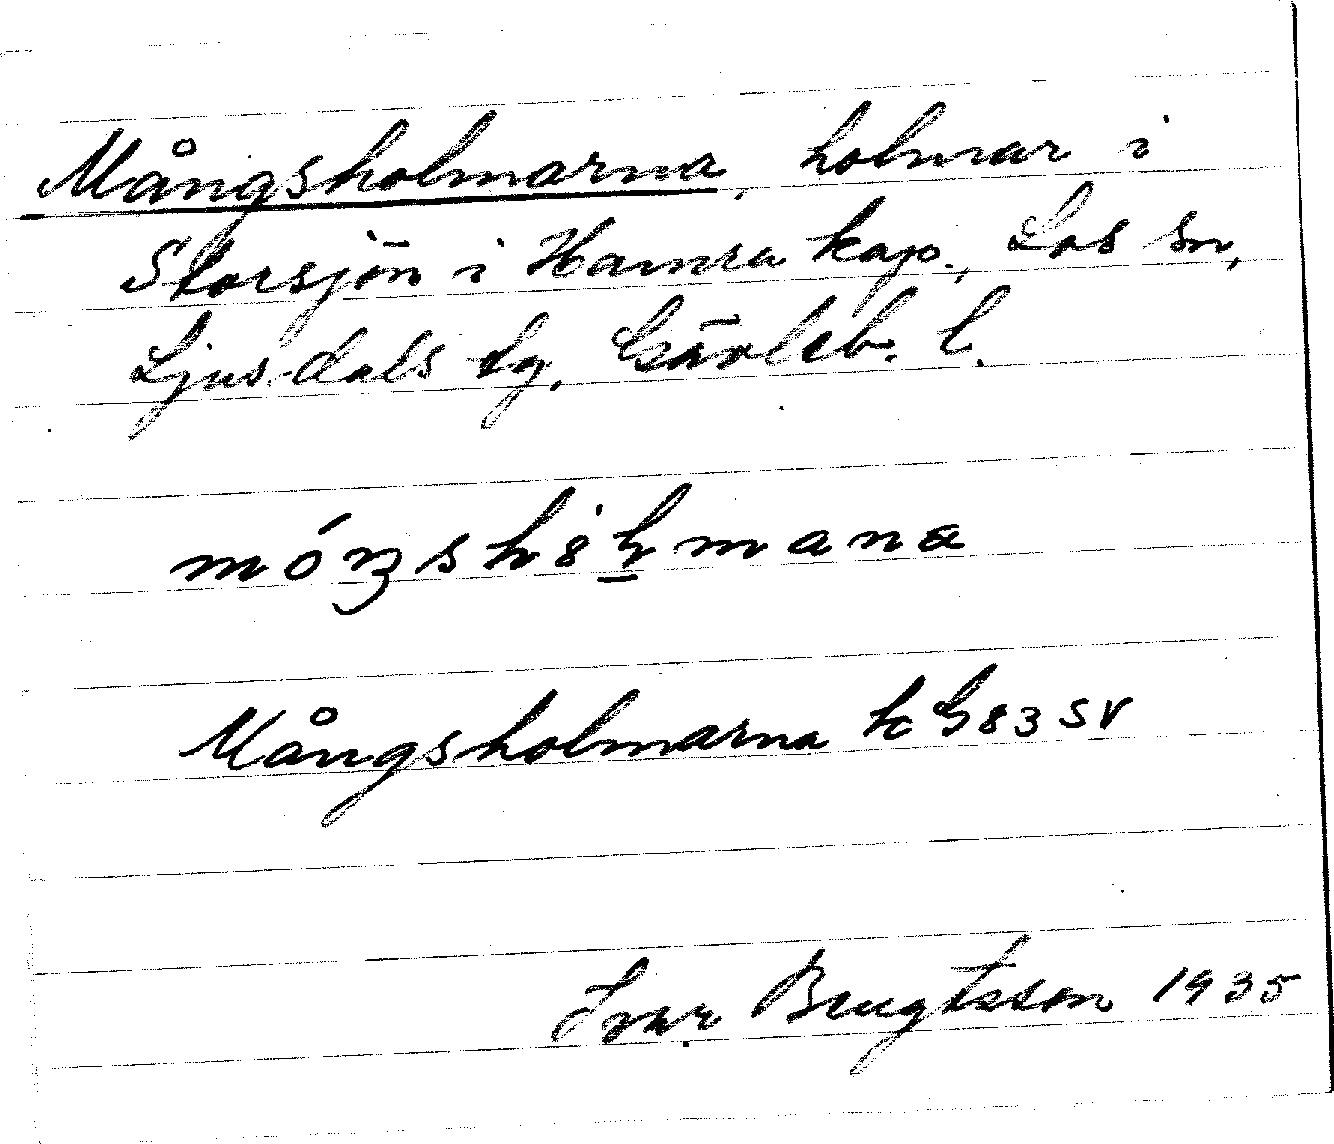 Mångsholmarna, holmar i
Storsjön i Hamra kap., Los sn,
Ljusdals tg, Gävleb. l.
Mångsholmarna k G 83 SV
Ivar Bengtsson 1935